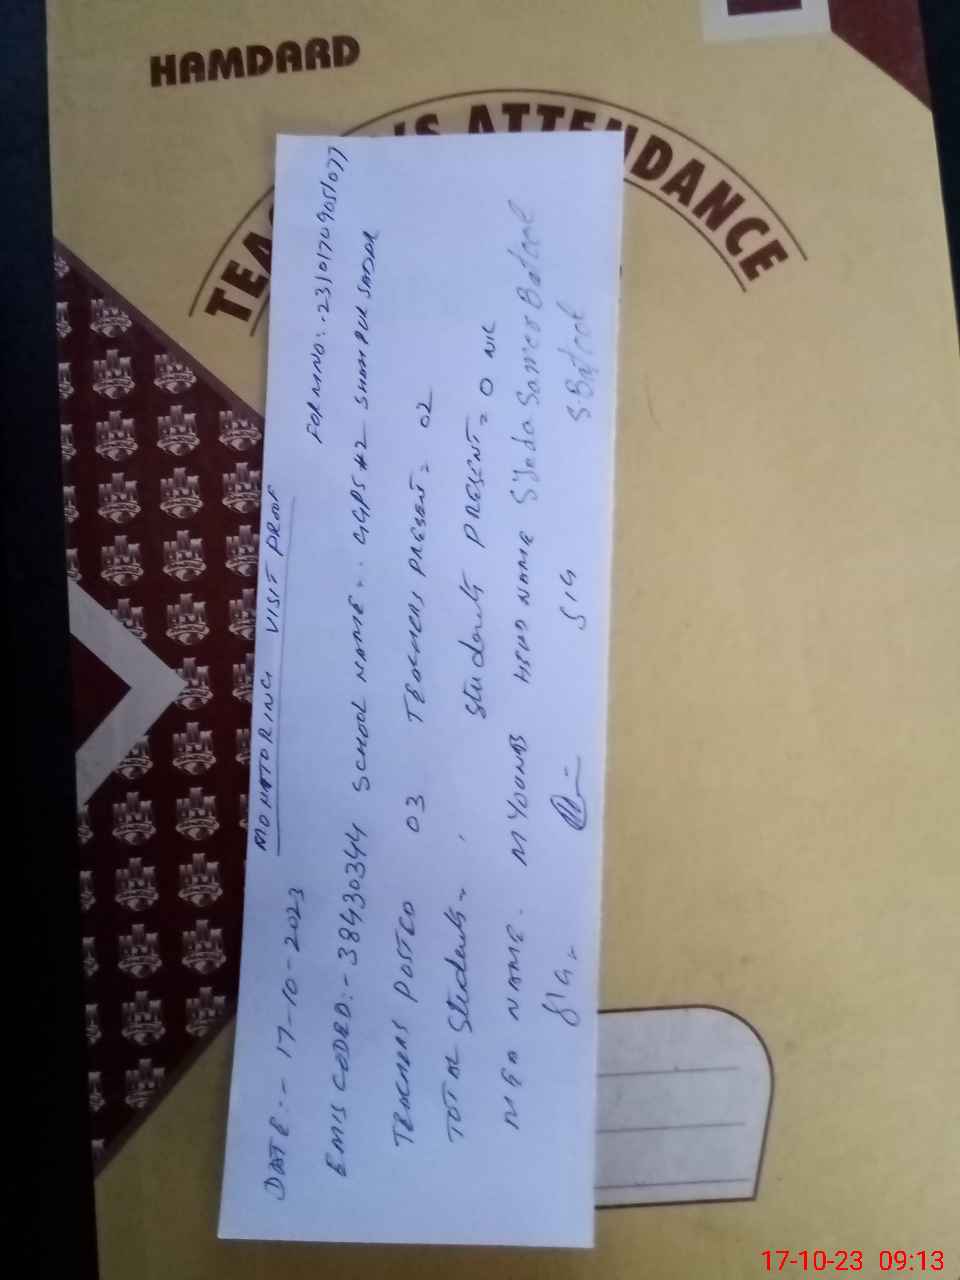 HAMDARD
TEA 'S ATTENDANCE
MONITORING VISIT PROOF
DATE:- 17-10-2023 FORM NO:-
EMIS CODE:- 38430344 SCHOOL NAME:- GGPS #2 SHAH PUR SADAR
TEACHERS POSTED 03 TEACHERS PRESENT= 02
TOTAL Students= Students PRESENT= 0 NIL
MEA NAME. M YOUNAS HEAD NAME Batool
SIG= SIG S Batool
17-10-23 09:13